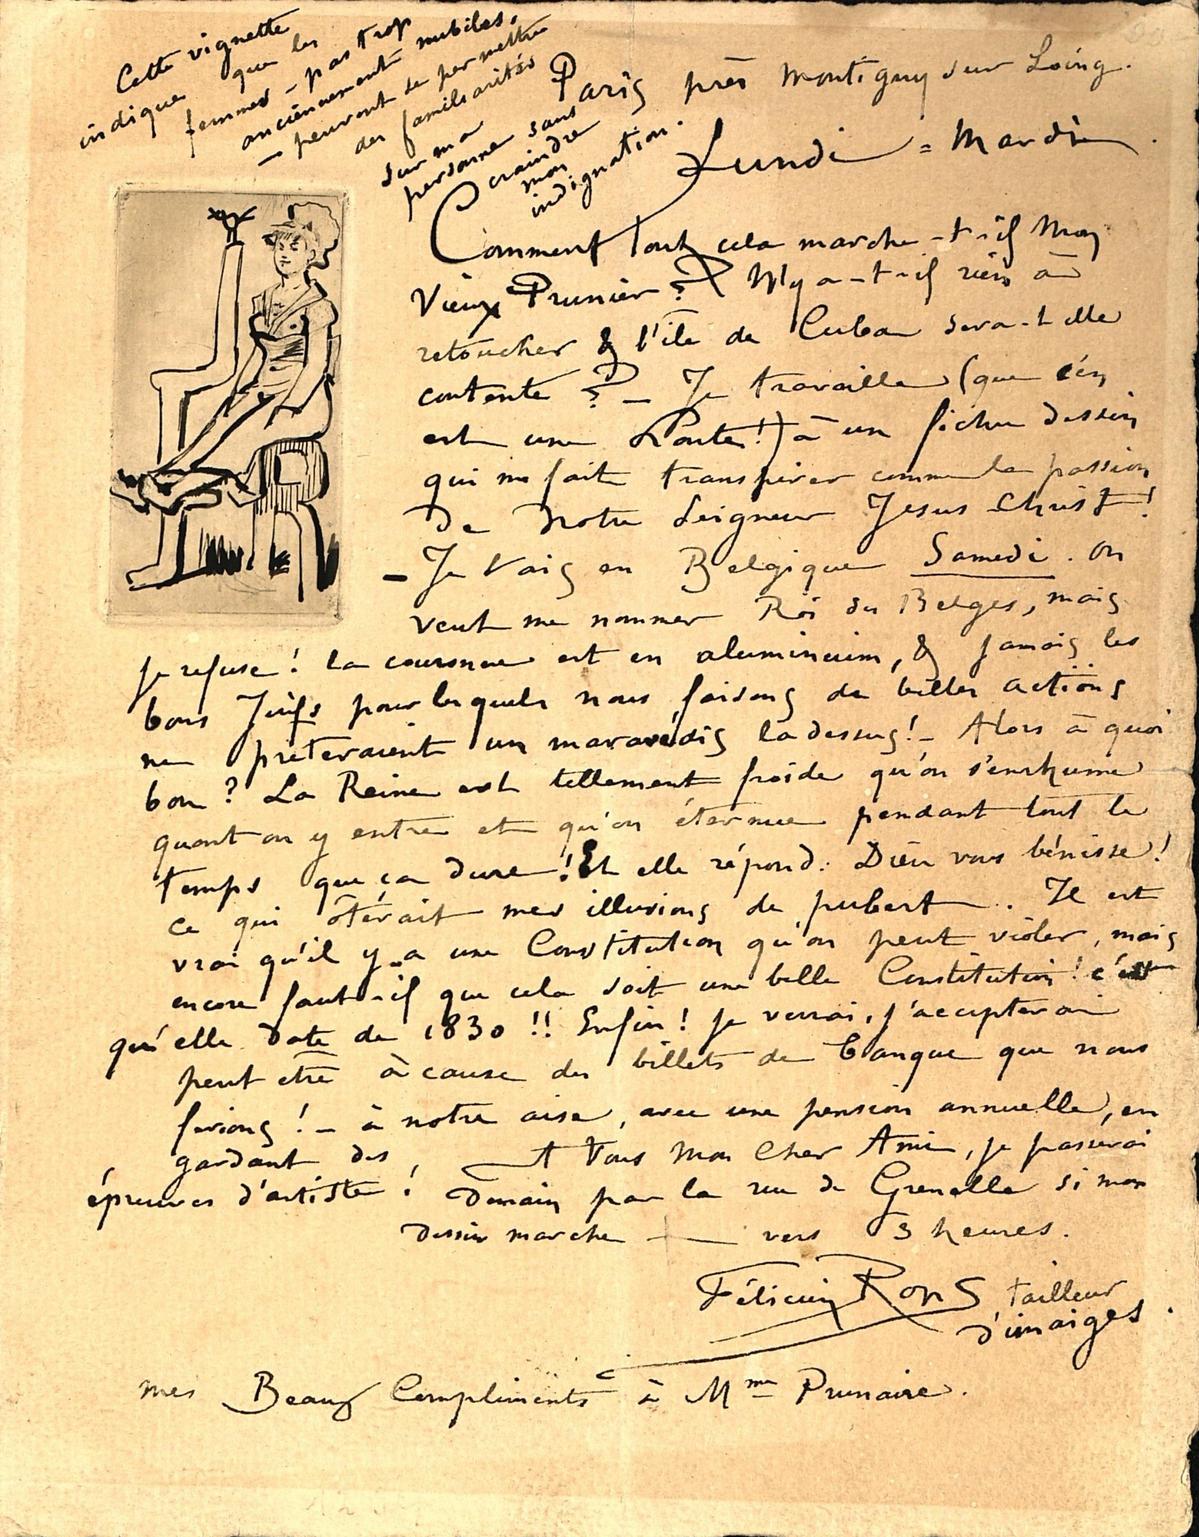 Cette vignette
indique que les
femmes – pas trop
anciennement nubiles,
– peuvent se permettre
des familiarités
sur ma
personne sans
craindre
mon
indignation.
Paris près Montigny sur Loing.
Lundi = Mardi.
Comment tout cela marche-t-il Mon
Vieux Prunier ? N'y a-t-il rien à
retoucher & l'île de Cuba sera-t-elle
contente ? – Je travaille (que c'en
est une honte !) à un fichu dessin
qui me fait transpirer comme la passion
de Notre Seigneur Jesus Christ !
– Je Vais en Belgique Samedi. On
veut me nommer Roi des Belges, mais
je refuse ! la couronne est en aluminium, & jamais les
bons Juifs pour lesquels nous faisons de belles actions
ne prêteraient un maravédis la dessus ! – Alors à quoi
bon ? La Reine est tellement froide qu'on s'enrhume
quant on y entre et qu'on éternue pendant tout le
temps que ça dure ! Et elle répond : Dieu vous bénisse !
ce qui ôterait mes illusions de pubert. Il est
vrai qu'il y a une Constitution qu'on peut violer, mais
encore faut-il que cela soit une belle Constitution ! c'est
qu'elle date de 1830 !! Enfin ! je verrai, j'accepterai
peut etre à cause des billets de banque que nous
ferions ! – à notre aise, avec une pension annuelle, en
gardant des
épreuves d'artiste !
A Vous Mon Cher Ami, je passerai
demain par la rue de Grenelle si mon
dessin marche — vers 3 heures.
Félicien Rops tailleur
d'imaiges.
mes Beaux Compliments à Mme Prunaire.